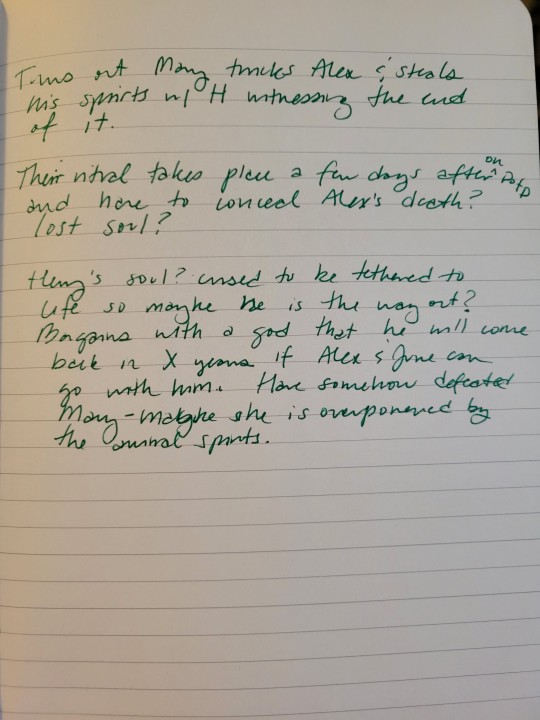 Turns out Mary tricks Alex & steals
his spirits w/ H witnessing the end
of it.
Their ritual takes place a few days after on DotD
and have to conceal Alex's death?
lost soul?
Henry's soul? cursed to be tethered to
life so maybe he is the way out?
Bargains with a god that he will come
back in X years if Alex & June can
go with him. Have somehow defeated
Mary - maybe she is overpowered by
the animal spirits.